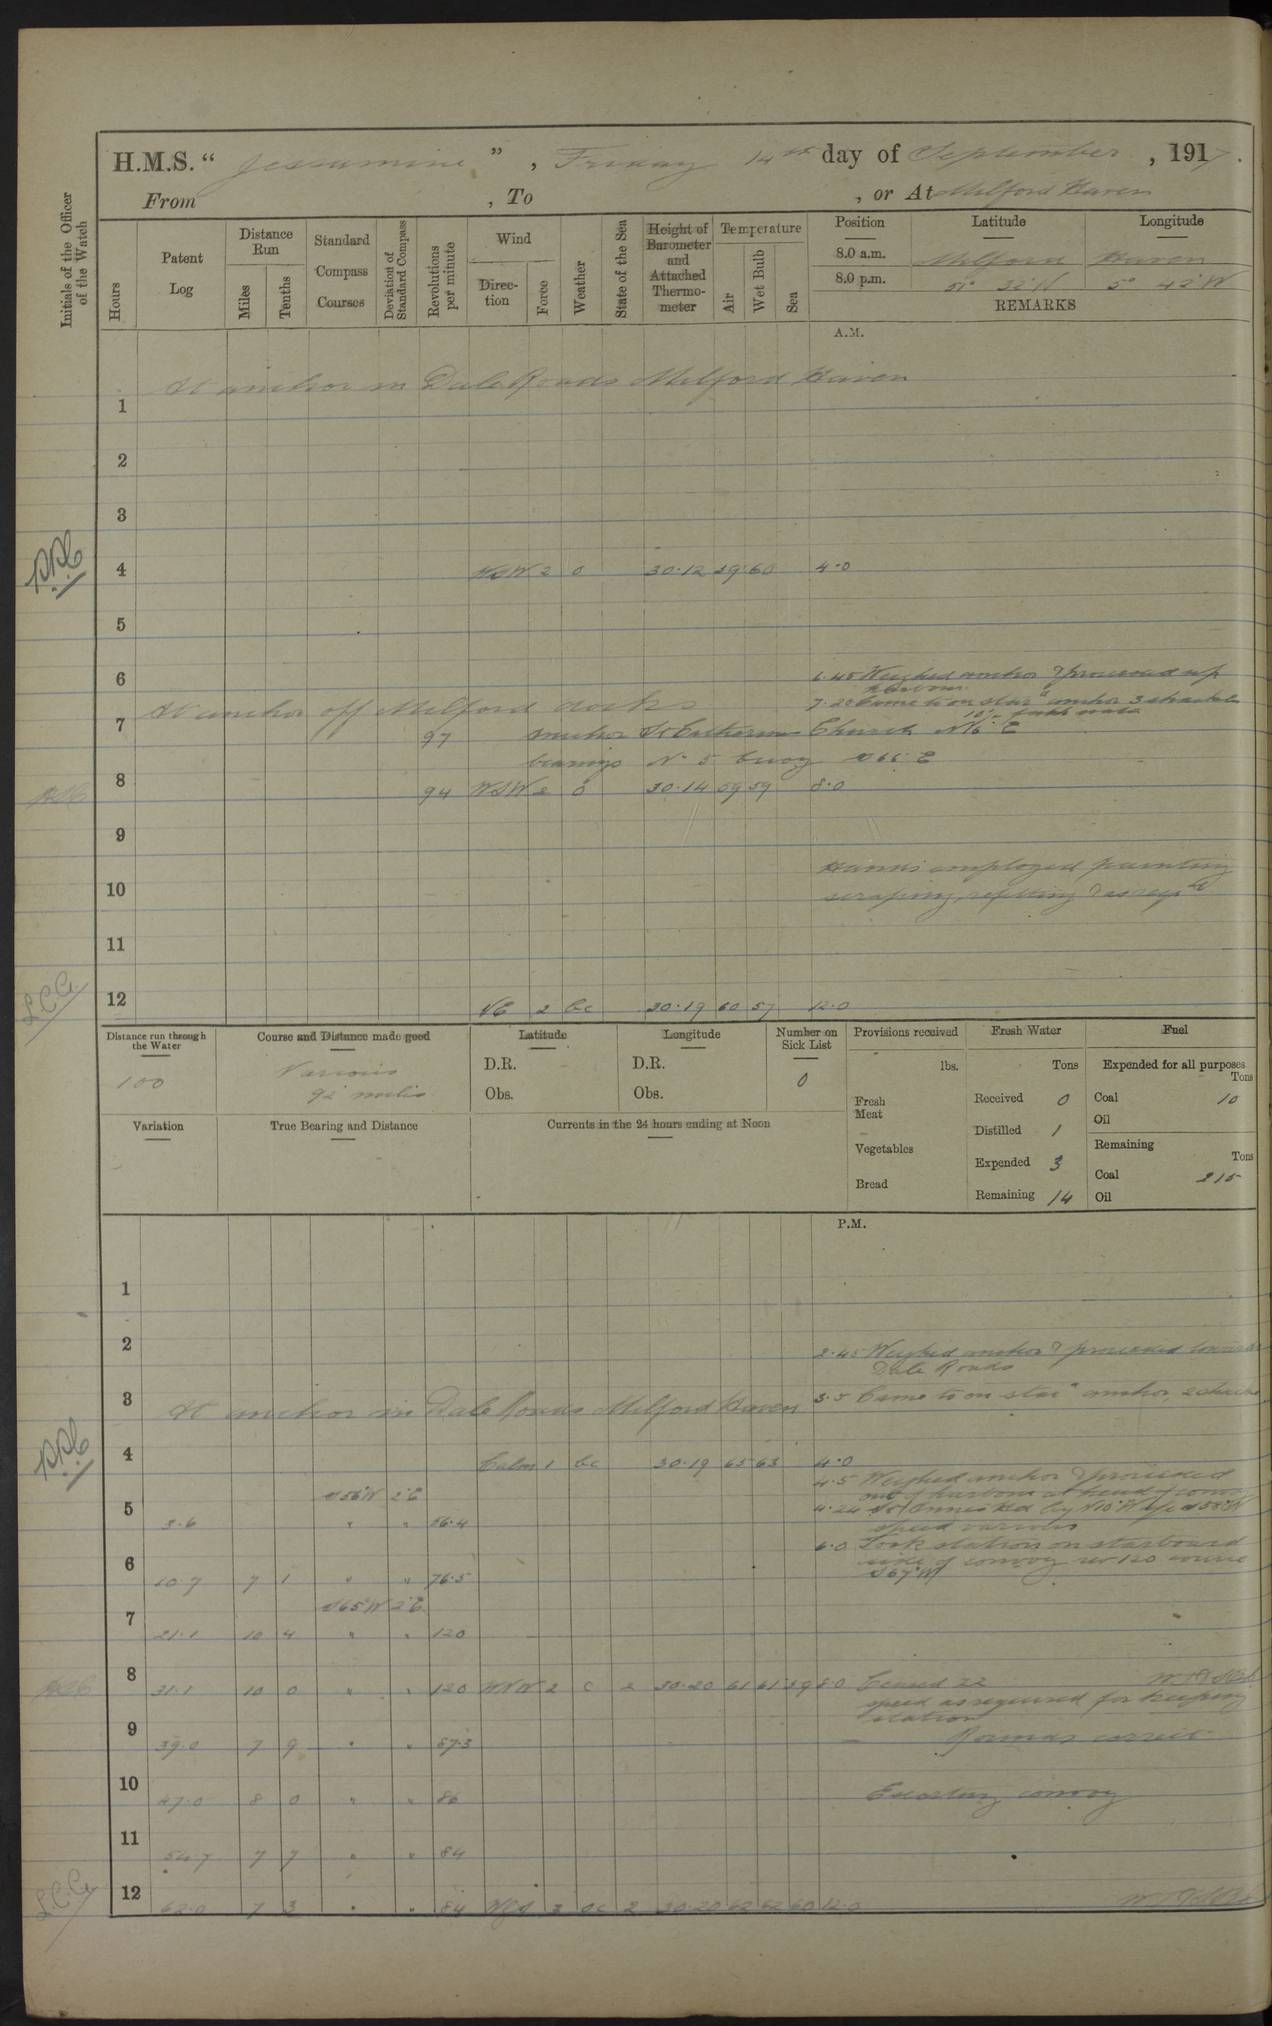 H.M.S. “ Jessamine ” , Friday 14th day of September , 1917 .
From , To , or At Milford Haven
Initials of the Officer of the Watch
Hours
Patent Log
Distance Run
Miles
Tenths
Standard Compass Courses
Deviation of Standard Compass
Revolutions per minute
Wind
Direction
Force
Weather
State of the Sea
Height of Barometer and Attached Thermometer
Temperature
Air
Wet Bulb
Sea
Position Latitude Longitude
8.0 a.m. Milford Haven
8.0 p.m. 51° 32' N 5° 42' W
REMARKS
A.M.
At anchor in Dale Roads Milford Haven
1
2
3
4 WSW 2 o 30.12 59 60 4.0
5
6 6.45 Weighed anchor & proceeded up
harbour
At anchor off Milford docks 7.20 Came to on star'd anchor 3 shackles
7 97 anchor St Catherines Church N16°E
bearings No 5 buoy
8 94 WSW 2 o 30.14 59 59 8.0
9
Hands employed painting
10 scraping, refitting & as req'd
11
12 2 bc 30.19 60 57 12.0
Distance run through the Water
100
Course and Distance made good
Various
92 miles
Latitude
D.R.
Obs.
Longitude
D.R.
Obs.
Number on Sick List
0
Provisions received
lbs.
Fresh Meat
Vegetables
Bread
Fresh Water
Tons
Received 0
Distilled 1
Expended 3
Remaining 14
Fuel
Expended for all purposes
Tons
Coal 10
Oil
Remaining
Tons
Coal 215
Oil
Variation
True Bearing and Distance
Currents in the 24 hours ending at Noon
P.M.
1
2 2.45 Weighed anchor & proceeded towards
Dale Roads
3 At anchor in Dale Roads Milford Haven 3.5 Came to on star'd anchor, 2 shackles
4 Calm 1 bc 30.19 65 63 4.0
4.5 Weighed anchor & proceeded
S56°W 2°E out of harbour at head of convoy
5 3.6 " " 56.4 4.24 St Annes Hd
speed various
6.0 Took station on starboard
6 10.7 7 1 " " 76.5 side of convoy rev 120 course
S67°W
S65°W 2°E
7 21.1 10 4 " " 120
8 31.1 10 0 " " 120 WNW 2 c 2 30.20 61 61 59 8.0
speed as required for keeping
station
9 39.0 7 9 " " 87.3 Rounds correct
10 47.0 8 0 " " 86 Escorting convoy
11 54.7 7 7 " " 84
12 62.0 7 3 " " 84 2 30.20 62 62 60 12.0